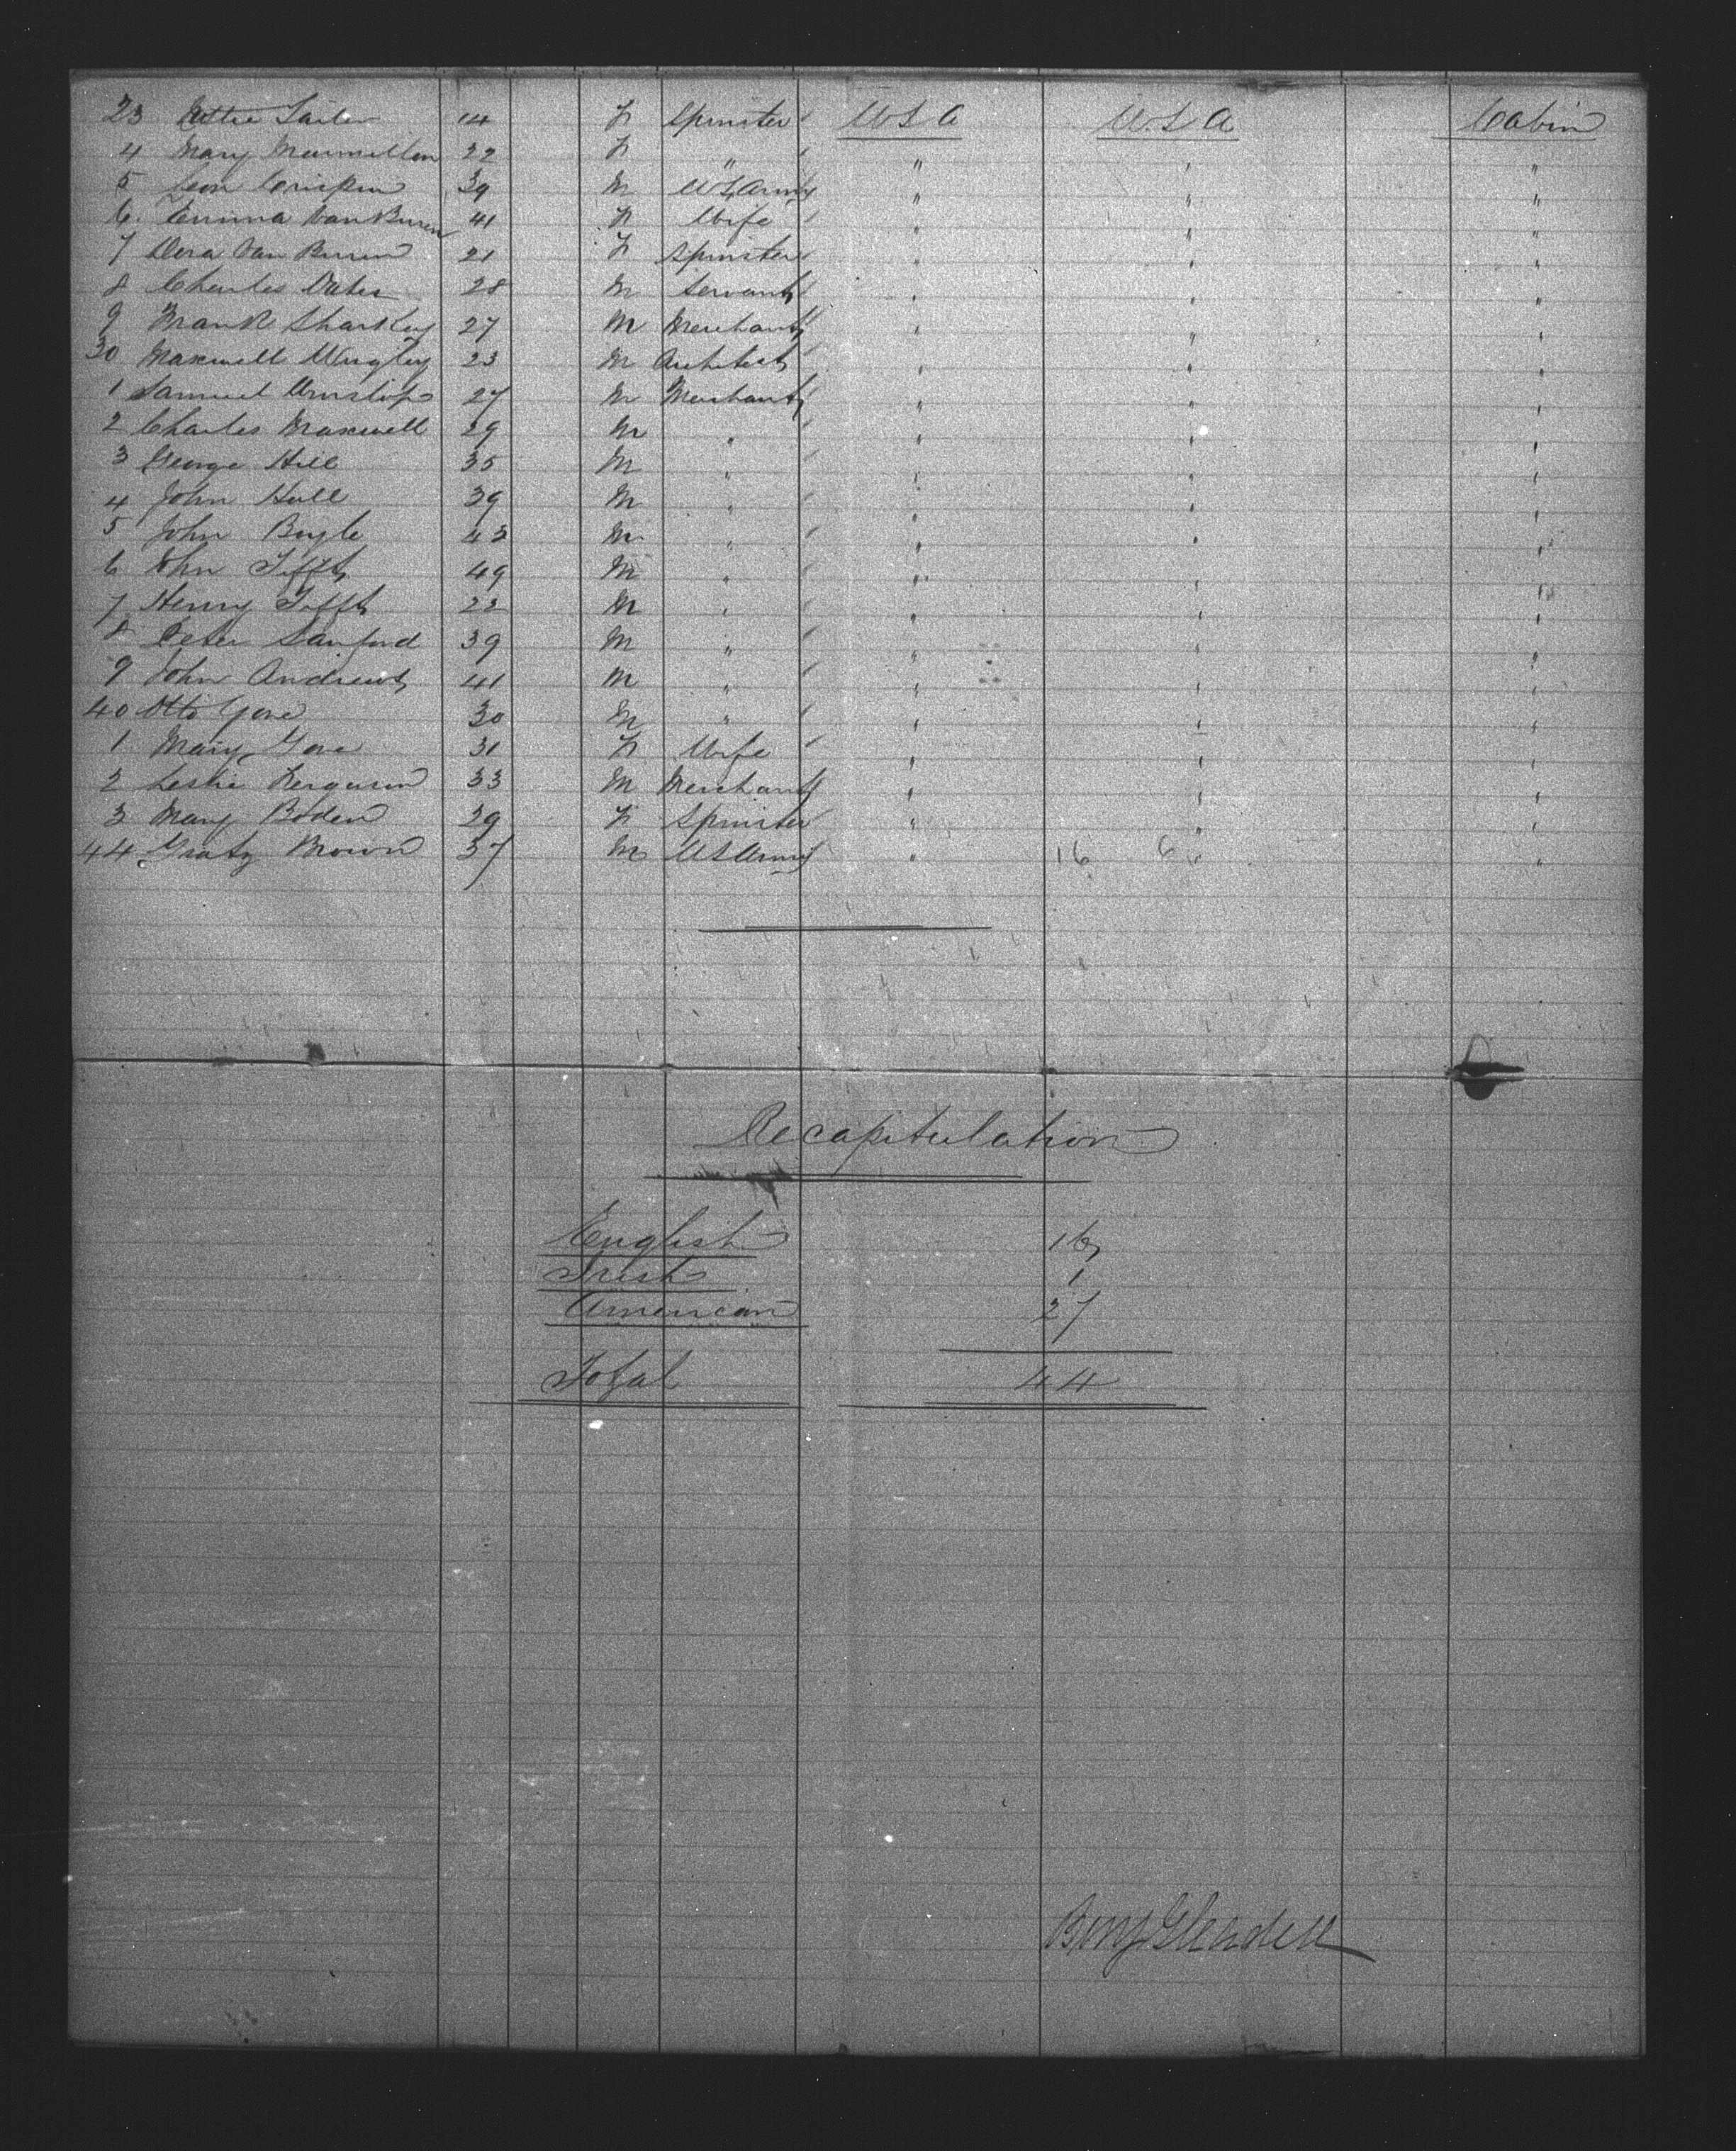 23 Ettie Sailer 14 F Spinster U S A U S A Cabin
4 Mary 22 F " " " "
5 Leon Crispin 39 M U S Army " " "
6 Emma Van Buren 41 F Wife " " "
7 Dora Van Buren 21 F Spinster " " "
8 Charles Oates 28 M Servant " " "
9 Frank Sharkey 27 M Merchant " " "
30 Maxwell Wrigley 23 M Architect " " "
1 Samuel Winslip 27 M Merchant " " "
2 Charles Maxwell 29 M " " " "
3 George Hill 35 M " " " "
4 John Hull 39 M " " " "
5 John Boyle 42 M " " " "
6 John Tifft 49 M " " " "
7 Henry Tifft 22 M " " " "
8 Peter Sanford 39 M " " " "
9 John Andrews 41 M " " " "
40 Otto Gove 30 M " " " "
1 Mary Gove 31 F Wife " " "
2 Leslie Ferguson 33 M Merchant " " "
3 Mary Boden 29 F Spinster " " "
44 Gratz Brown 37 M U S Army " 16 6 " "
Recapitulation
English 16
Irish 1
American 27
Total 44
Benj Gleadell